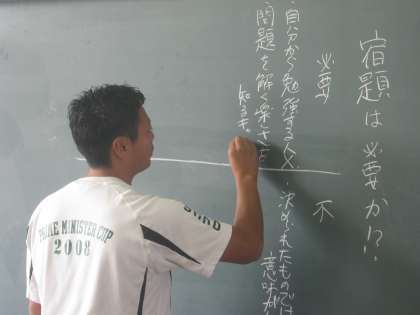 宿題は必要か!?
必要
・自分から勉強する人
問題を解く楽しさを
知る
不
・決められたものでは
意味が
MINISTER CUP
2008